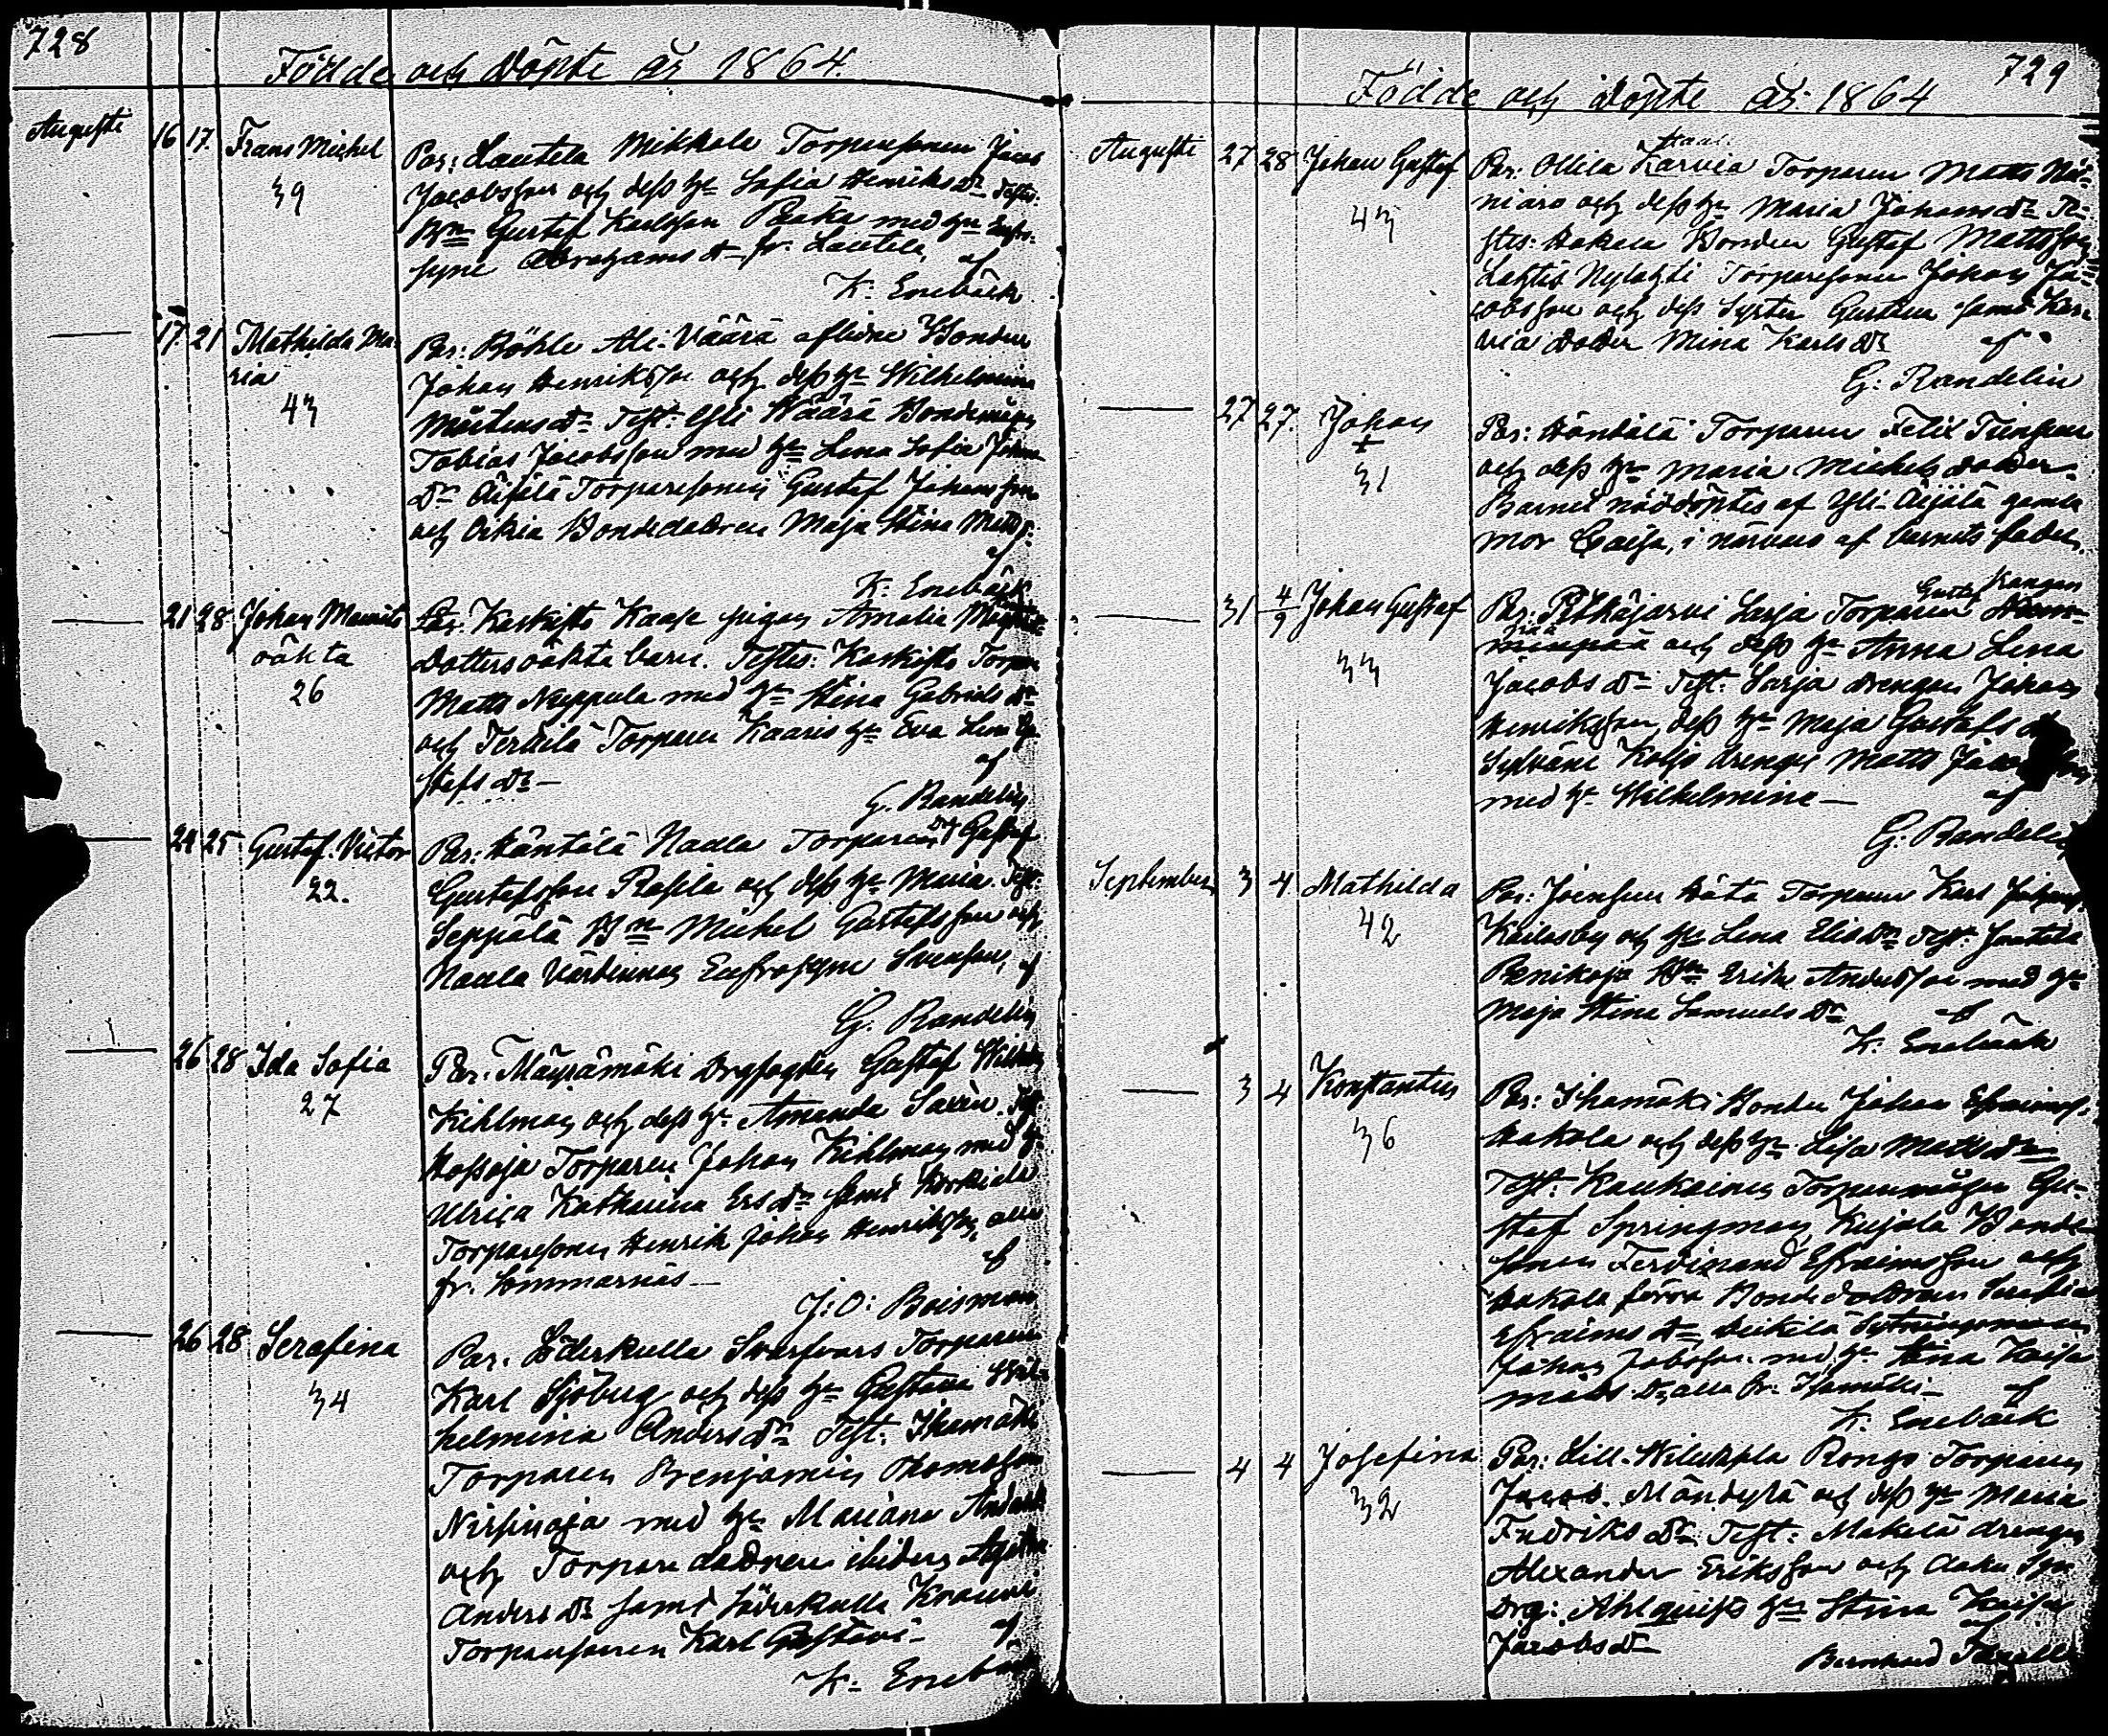 728
Födde och Döpte år 1864.
Augusti 16 17 Frans Michel
39
Par: Lautela Mikkola Torparesonen Jacob
Jacobsson och dess h: Sofia Henriks Dr Testes:
Bn Gustaf Karlsson Paaka med hu Eufro-
syne Abrahams Dr fr. Lautela, af
K: Enebäck
17 21 Mathilda Ma-
ria
43
Par: Böhle Ali-Väärä aflidne Bonden
Johan Henriksson och dess h: Wilhelmina
Mårtens Dr Test: Yli Wäärä Bondemågen
Tobias Jacobsson med h: Lena Sofia Johans
Dr Äijälä Torparesonen Gustaf Johansson
och Oikia Bondedottren Maja Stina Matts:
af
K. Enebäck
21 28 Johan Maurits
oäkta
26
Par: Koskisto Kaase pigan Amalia
Dotters oäkta barn. Testes: Koskisto Torpn
Matts Nuppula med h: Stina Gabriels Dr
och Terttilä Torparen Kaaris h: Eva Lena Gu-
stafs Dr af
G. Randelin
24 25 Gustaf Victor
22.
Par: Häntälä Naula Torparen Gustaf
Gustafsson Prassla och dess h: Maria. Test:
Seppälä Bn Michel Gustafsson och
Naula Värdinnan Eufrosyne Svensson, af
G. Randelin
26 28 Ida Sofia
27
Par: Mäyrämäki Drgfogden Gustaf Wilhelm
Kihlman och dess h: Amanda Savén. Test:
Hossoja Torparen Johan Kihlman med h:
Ulrica Katharina Ers Dr samt Korkiala
Torparesonen Henrik Johan Henriksson, alla
fr. Sommarnäs af
J: O: Boisman
26 28 Serafina
34
Par. Söderkulla Svarfvars Torparen
Karl Sjöberg och dess h: Gustava Wil-
helmina Anders Dr Test: Ihamäki
Torparen Benjamin Thomasson
Nissinoja med h: Mariana Anders
och Torpare dottren ibidem Agatha
Anders Dr samt Söderkulla Krauvi
Torparesonen Karl Gustavi af
K: Enebäck
729
Födde och Döpte år 1864
Augusti 27 28 Johan Gustaf
43
Par: Ollila Karvia Torparen Matts
niaro och dess hu Maria Johans Dr Te-
stes: Hakala Bonden Gustaf Mattsson
Lahtis Nylahti Torparesonen Johan Ja-
cobsson och dess Syster Gustava samt Kar-
via Dotter Mina Karls Dr af
G: Randelin
27 27. Johan
+
31
Par: Häntälä Torparen Felix
och dess hu Maria Michels dotter
Barnet nöddöptes af Yli-Äijälä gamla
mor Caisa, i närvaro af barnets fader.
31 4/9 Johan Gustaf
33
Par: Pitkäjärvi Sarja Torparen Gustaf Kangas
pää och dess h: Anna Lena
Jacobs Dr Test: Sarja drengen Johan
Henriksson, dess h: Maja Gustafs Dr
Sylvänä Koljo drengen Matts
med h: Wilhelmina af
G: Randelin
September 3 4 Mathilda
42
Par: Joensuu Hätä Torparen Karl Johans
och h: Lena Elis Dr Test:
Penikoja Bn Erik Andersson med h:
Maja Stina Samuels Dr af
K. Enebäck
3 4 Konstantin
36
Par: Ihamäki Bonden Johan Efraimss.
Hakala och dess h: Lisa Matts Dr
Test: Kaukoinen Torparemågen Gu-
staf Springman, Kujala Bonde-
sonen Ferdinand Efraimsson och
Hakala förra Bondedottren Serafia
Efraims Dr,
Johan Jobsson med h: Stina Kaisa
Mats Dr, alla fr. af
K. Enebäck
4 4 Josefina
32
Par: Lill-Wiluksela Rongo Torparen
Jacob Mändylä och dess hu Maria
Fredriks Dr Test: Makelä drengen
Alexander Eriksson och
Drg: Ahlquists hu Stina Kaisa
Jacobs Dr af
Bernhard